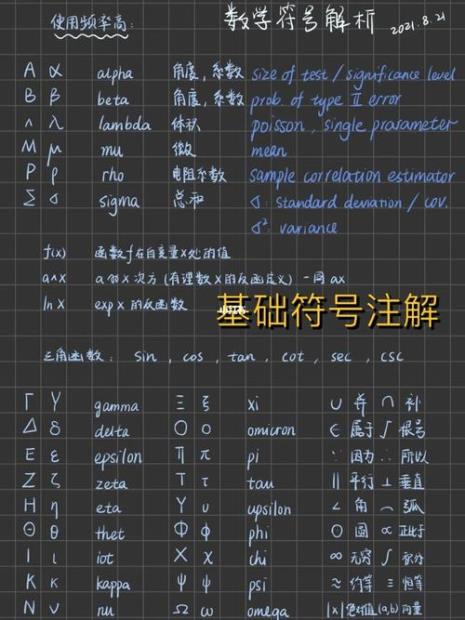 使用频率高: 数学符号解析 2021.8.21
Α α alpha 角度,系数 size of test / significance level
Β β beta 角度,系数 prob. of type II error
Λ λ lambda 体积 poisson, single prasameter
Μ μ mu 微 mean
Ρ ρ rho 电阻系数 sample correlation estimator
Σ σ sigma 总和 σ: standard deviation / cov.
σ²: variance
f(x) 函数f在自变量x处的值
a∧x a的x次方(有理数x的反函定义)-同ax
ln x exp x 的反函数
基础符号注解
三角函数: sin, cos, tan, cot, sec, csc
Γ γ gamma Ξ ξ xi ∪ 并 ∩ 补
Δ δ delta Ο ο omicron ∈ 属于 ∫ 根号
Ε ε epsilon Π π pi ∵ 因为 ∴ 所以
Ζ ζ zeta Τ τ tau || 平行 ⊥ 垂直
Η η eta Υ υ upsilon ∠ 角 ⌒ 弧
Θ θ thet Φ φ phi ○ 圆 ∝ 正比于
Ι ι iot Χ χ chi ∞ 无穷 ∫ 积分
Κ κ kappa Ψ ψ psi ≈ 约等 ≡ 恒等
Ν ν nu Ω ω omega |x| 绝对值 (a,b) 向量